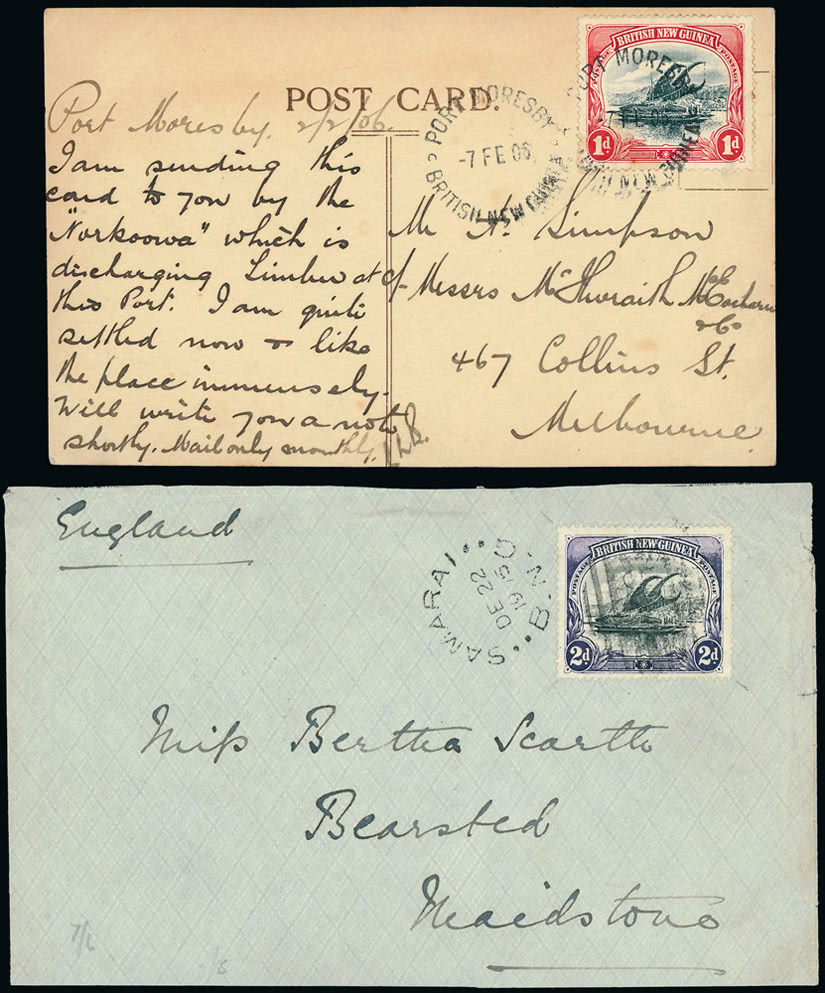 POST CARD.
BRITISH NEW GUINEA
POSTAGE POSTAGE
1d 1d
PORT MORESBY
-7 FE 06
BRITISH NEW GUINEA
PORT MORESBY
-7 FE 06
BRITISH NEW GUINEA
Port Moresby. 2/2/06.
I am sending this
card to you by the
"Norkoowa" which is
discharging Timber at
this Port. I am quite
settled now & like
the place immensely.
Will write you a note
shortly. Mail only monthly.
Mr A. Simpson
c/- Messrs McIlwraith McEacharn
& Co
467 Collins St.
Melbourne.
England
SAMARAI
DE 22
19 15
B.N.G
BRITISH NEW GUINEA
POSTAGE POSTAGE
2d 2d
Miss Bertha Scarth
Bearsted
Maidstone
7/6